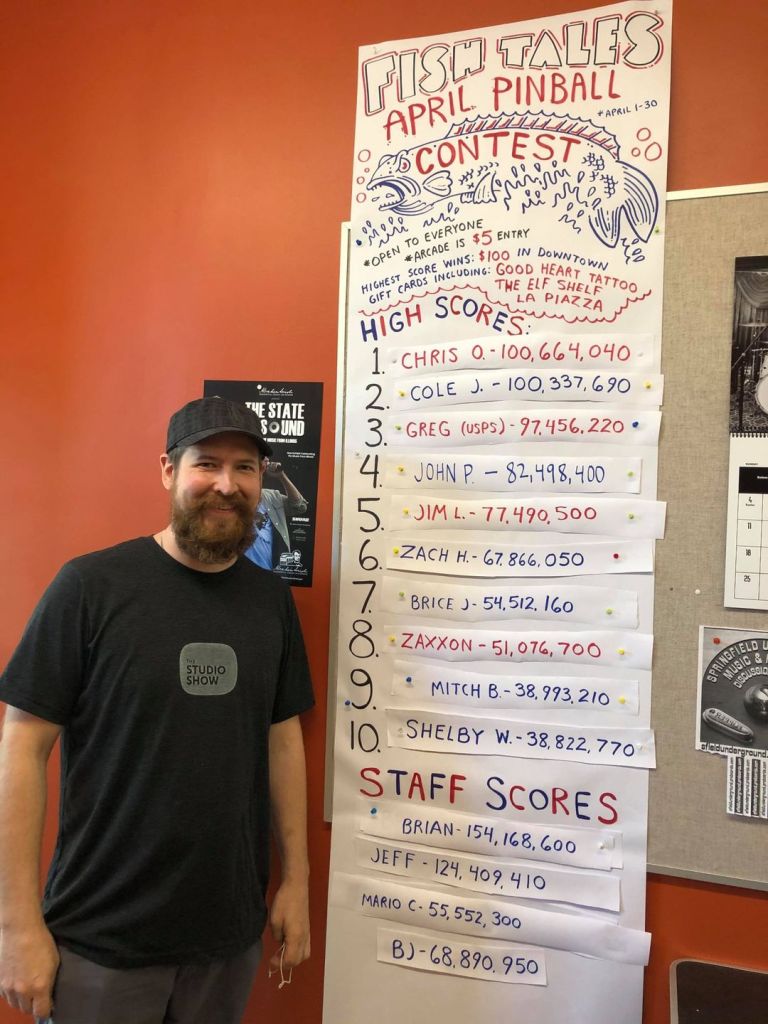 FISH TALES
APRIL PINBALL
*APRIL 1-30
CONTEST
*OPEN TO EVERYONE
*ARCADE IS $5 ENTRY
HIGHEST SCORE WINS: $100 IN DOWNTOWN
GIFT CARDS INCLUDING: GOOD HEART TATTOO
THE ELF SHELF
LA PIAZZA
HIGH SCORES:
1. CHRIS O. - 100,664,040
2. COLE J. - 100,337,690
3. GREG (USPS) - 97,456,220
4. JOHN P. - 82,498,400
5. JIM L. - 77,490,500
6. ZACH H. - 67,866,050
7. BRICE J - 54,512,160
8. ZAXXON - 51,076,700
9. MITCH B. - 38,993,210
10. SHELBY W. - 38,822,770
STAFF SCORES
BRIAN - 154,168,600
JEFF - 124,409,410
MARIO C - 55,552,300
BJ - 68,890,950
THE STATE
SOUND
THE
STUDIO
SHOW
4
11
18
25
SPRINGFIELD U
MUSIC &
DISCUSSIO
sfieldunderground.